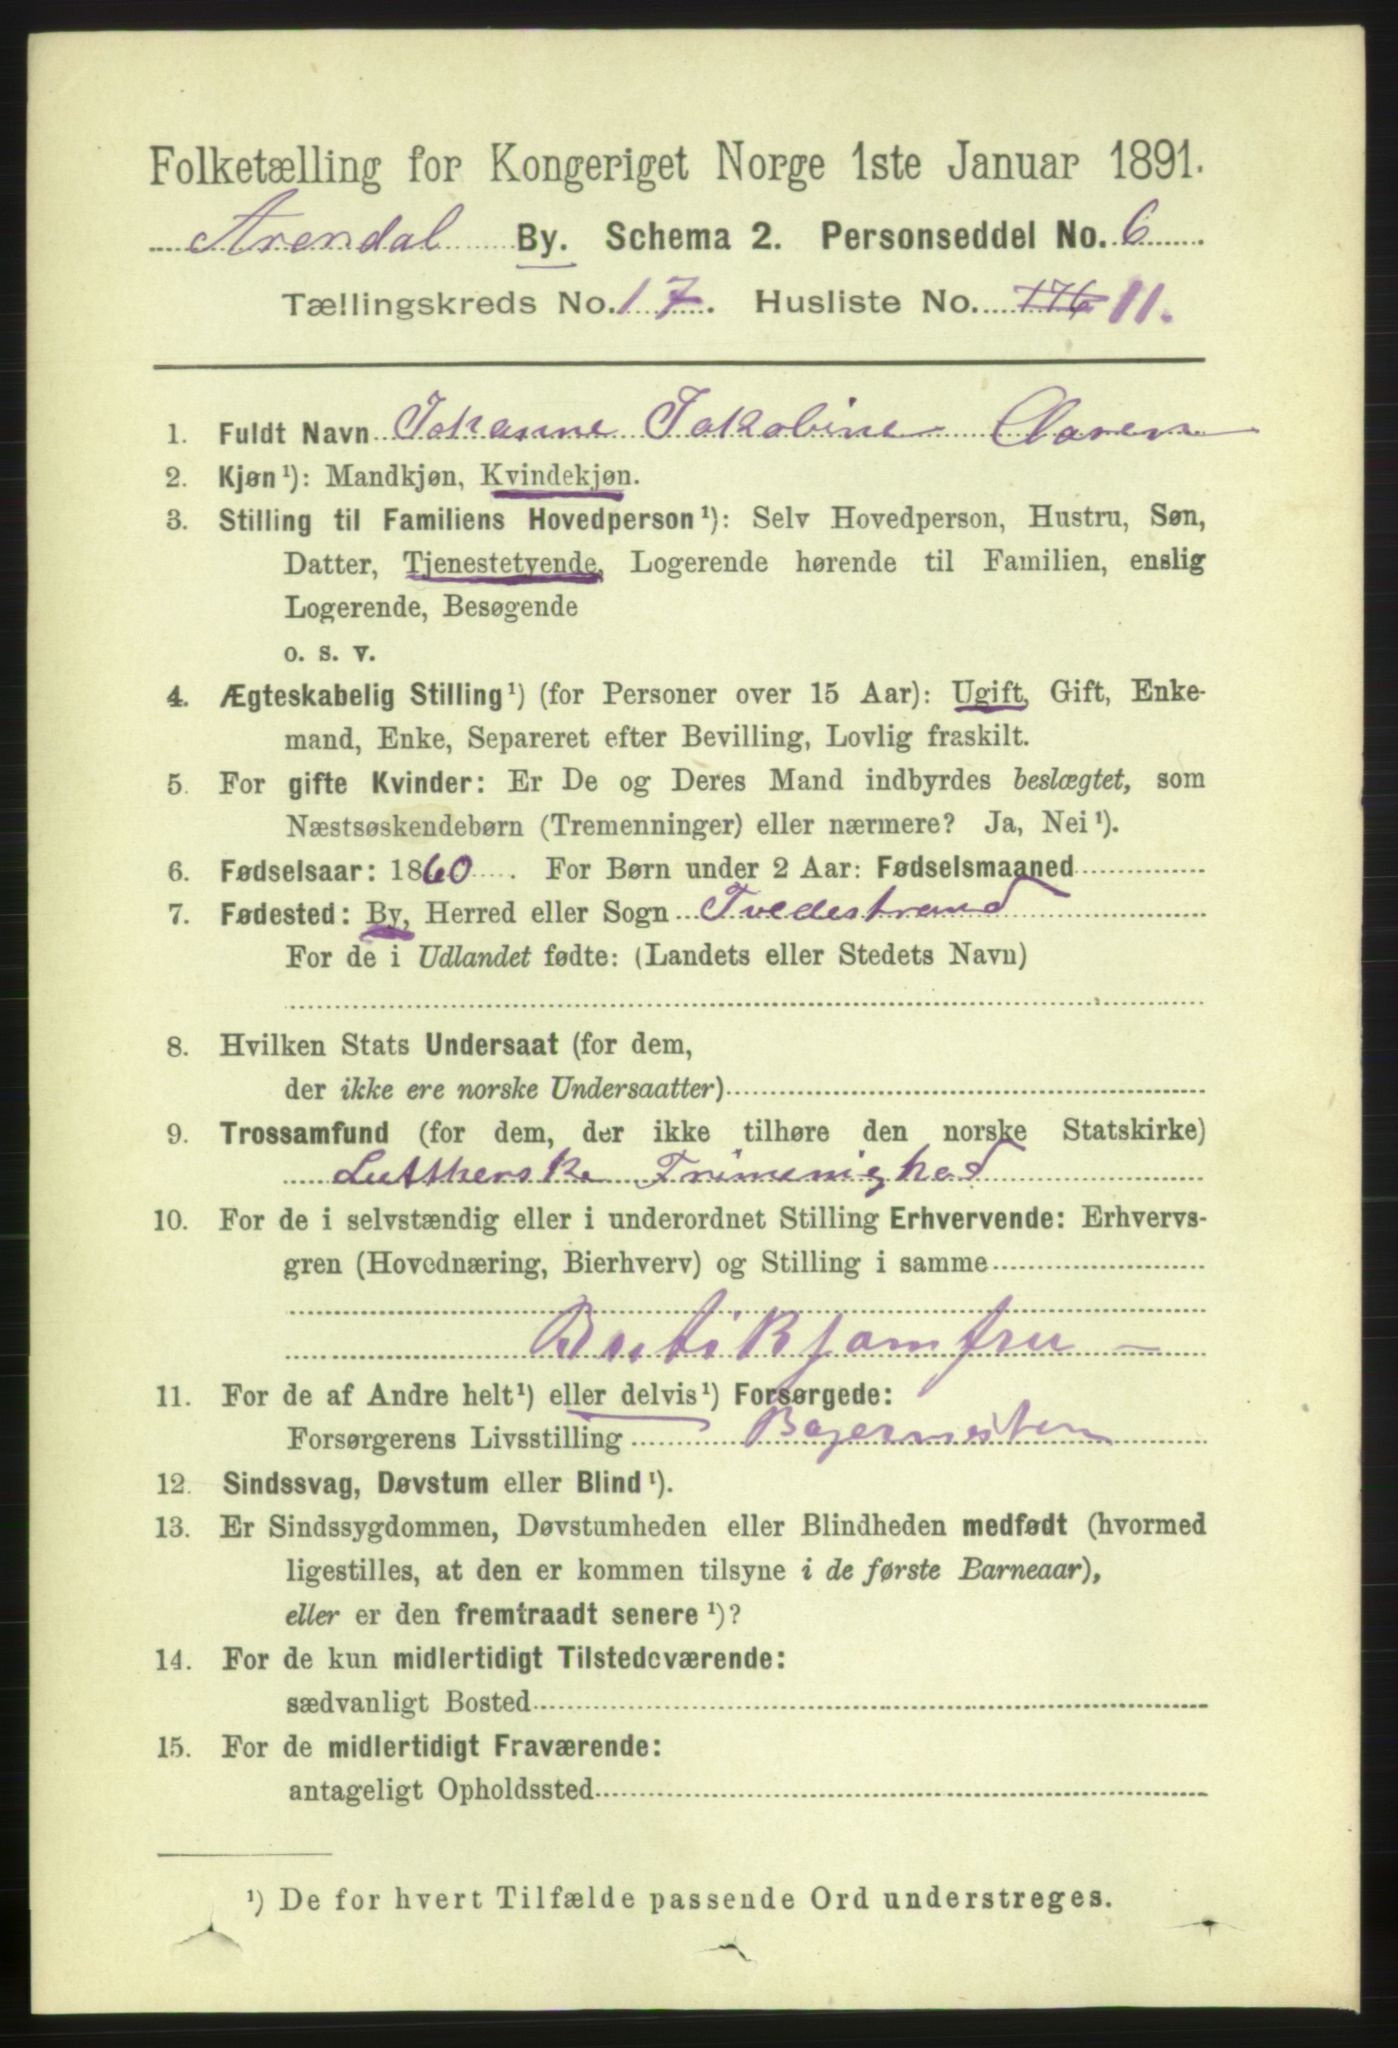 Folketælling for Kongeriget Norge 1ste Januar 1891.
Arendal By. Schema 2. Personseddel No. 6
Tællingskreds No. 17. Husliste No. 176 11.
1. Fuldt Navn Johanne Jakobine Claren
2. Kjøn ¹): Mandkjøn, Kvindekjøn.
3. Stilling til Familiens Hovedperson ¹): Selv Hovedperson, Hustru, Søn,
Datter, Tjenestetyende, Logerende hørende til Familien, enslig
Logerende, Besøgende
o. s. v.
4. Ægteskabelig Stilling ¹) (for Personer over 15 Aar): Ugift, Gift, Enke-
mand, Enke, Separeret efter Bevilling, Lovlig fraskilt.
5. For gifte Kvinder: Er De og Deres Mand indbyrdes beslægtet, som
Næstsøskendebørn (Tremenninger) eller nærmere? Ja, Nei ¹).
6. Fødselsaar: 1860. For Børn under 2 Aar: Fødselsmaaned
7. Fødested: By, Herred eller Sogn Tvedestrand
For de i Udlandet fødte: (Landets eller Stedets Navn)
8. Hvilken Stats Undersaat (for dem,
der ikke ere norske Undersaatter)
9. Trossamfund (for dem, der ikke tilhøre den norske Statskirke)
Lutherske Frimenighed
10. For de i selvstændig eller i underordnet Stilling Erhvervende: Erhvervs-
gren (Hovednæring, Bierhverv) og Stilling i samme
Butikjomfru
11. For de af Andre helt ¹) eller delvis ¹) Forsørgede:
Forsørgerens Livsstilling Bagermester
12. Sindssvag, Døvstum eller Blind ¹).
13. Er Sindssygdommen, Døvstumheden eller Blindheden medfødt (hvormed
ligestilles, at den er kommen tilsyne i de første Barneaar),
eller er den fremtraadt senere ¹)?
14. For de kun midlertidigt Tilstedeværende:
sædvanligt Bosted
15. For de midlertidigt Fraværende:
antageligt Opholdssted
¹) De for hvert Tilfælde passende Ord understreges.